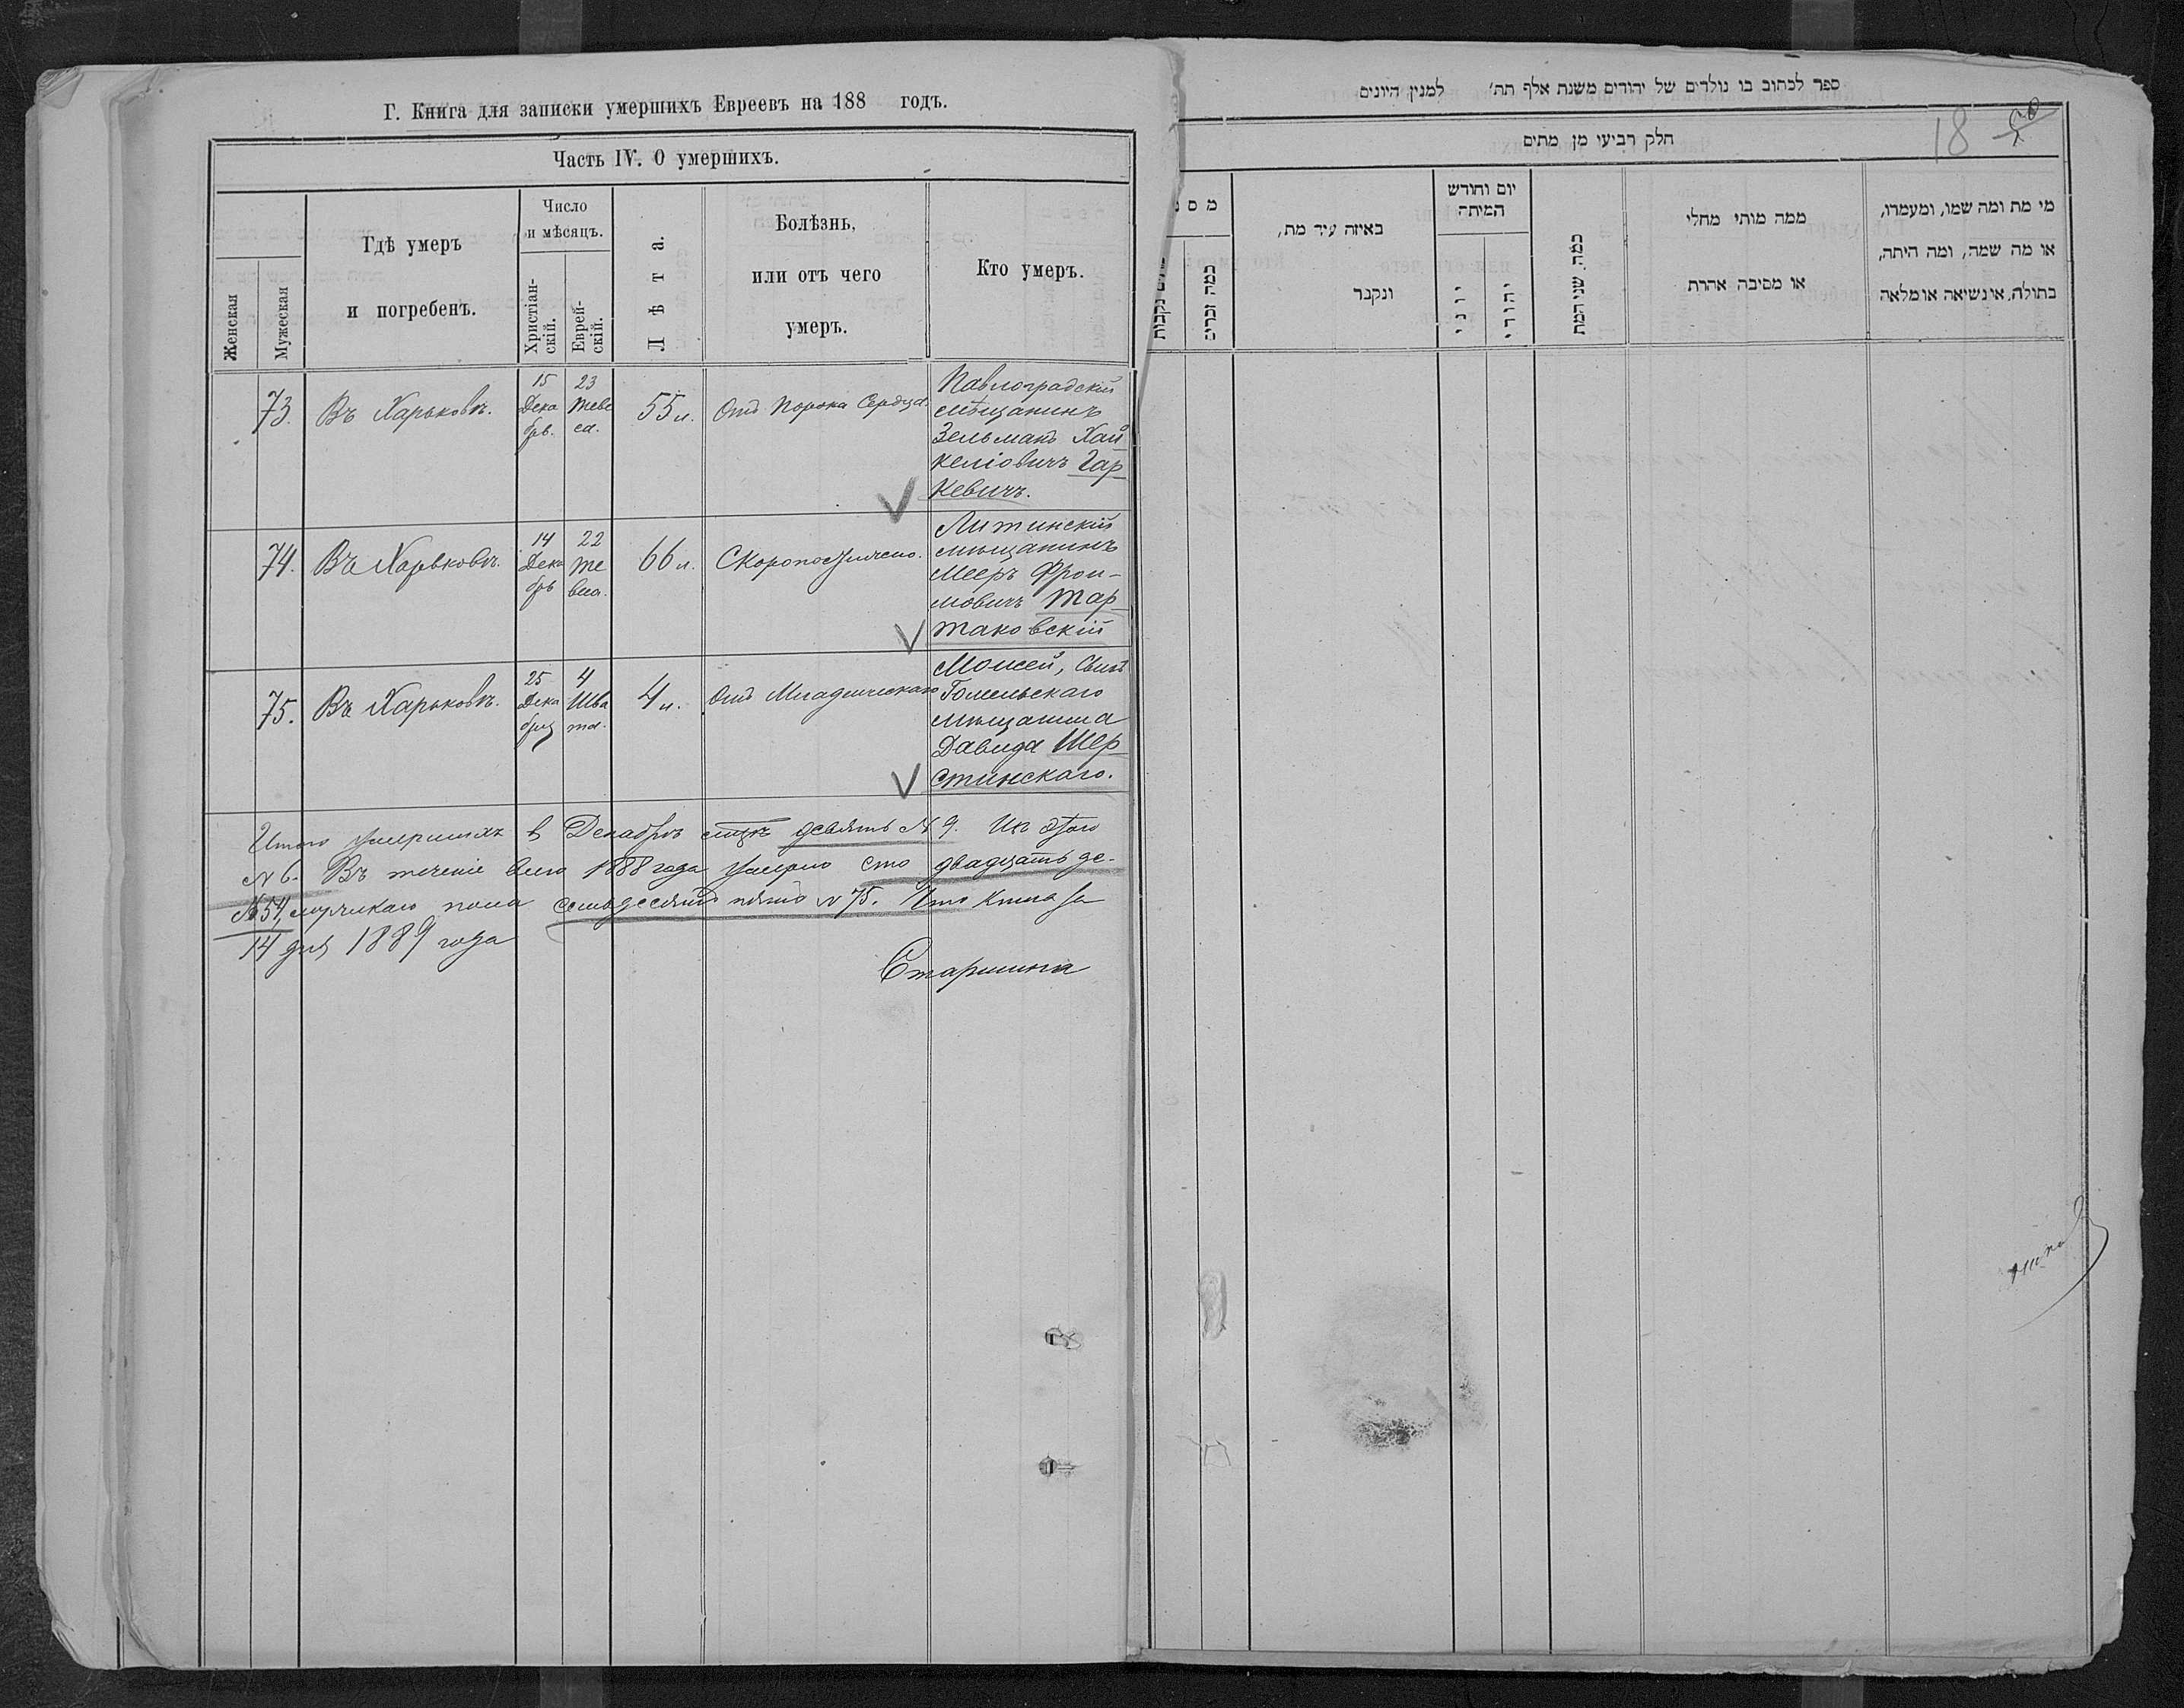 Г. Книга для записки умершихъ Евреевъ на 188 годъ.
Часть IV. О умершихъ.
Женская
Мужеская
Гдѣ умеръ
и погребенъ.
Число
и мѣсяцъ.
Христіан-
скій.
Еврей-
скій.
Лѣта.
Болѣзнь,
или отъ чего
умеръ.
Кто умеръ.
73.
Въ Харьковѣ.
15
Дека
брь.
23
Теве
са.
55 л.
Отъ Порока Сердца
Павлоградскій
мѣщанинъ
Зельманъ Хай
келіовичъ Гар
кевичъ.
74.
Въ Харьковѣ.
14
Дека
брь
22
Те
веса.
66 л.
Скоропостижно.
Литинскій
мѣщанинъ
Мееръ Фрои-
мовичъ Тар
таковскій
75.
Въ Харьковѣ.
25
Дека
бря
4
Шва
та.
4 л.
Отъ Младенческаго
Моисей, Сынъ
Гомельскаго
мѣщанина
Давида Шер
стинскаго.
Итого умершихъ в Декабрѣ девять № 9. Изъ этого
№ 6. Въ теченіе всего 1888 года умерло сто двадцать де-
№ 54, мужскаго пола семьдесятъ пять № 75. Что книга
14 дня 1889 года
Старшина
ספר לכתוב בו נולדים של יהודים משנת אלף תת׳ למנין היונים
18
חלק רביעי מן מתים
מס
נקבות
כמה זכרים
באיזה עיר מת,
ונקבר
יום וחודש
המיתה
יוני
יהודי
כמה שני המת
ממה מותי מחלי
או מסיבה אהרת
מי מת ומה שמו, ומעמרו,
או מה שמה, ומה היתה,
בתולה, או נשיאה או מלאה